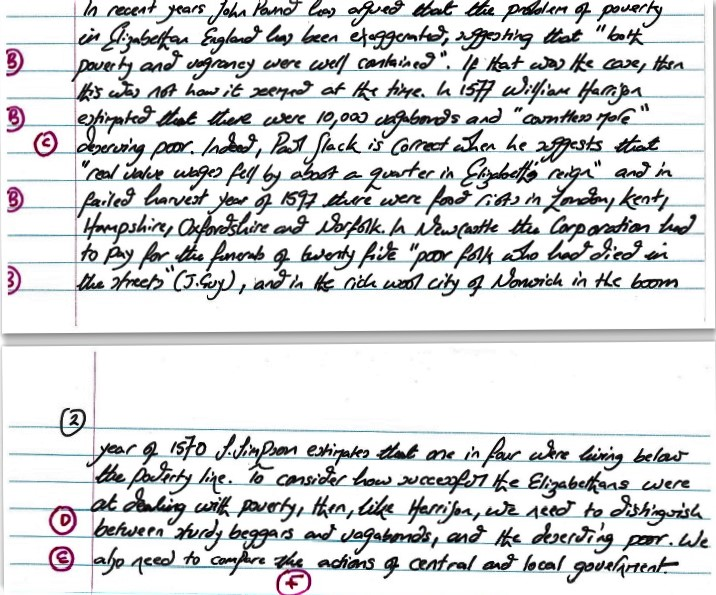 In recent years John Pound has argued that the problem of poverty
in Elizabethan England has been exaggerated, suggesting that "both
B poverty and vagrancy were well contained". If that was the case, then
this was not how it seemed at the time. In 1577 William Harrison
B estimated that there were 10,000 vagabonds and "countless more"
C deserving poor. Indeed, Paul Slack is correct when he suggests that
"real value wages fell by about a quarter in Elizabeth's reign" and in
B failed harvest year of 1597 there were food riots in London, Kent,
Hampshire, Oxfordshire and Norfolk. In Newcastle the Corporation had
to pay for the funerals of twenty five "poor folk who had died in
B the streets" (J.Guy), and in the rich wool city of Norwich in the boom
2
year of 1570 J.Simpson estimates that one in four were living below
the poverty line. To consider how successful the Elizabethans were
at dealing with poverty, then, like Harrison, we need to distinguish
D between sturdy beggars and vagabonds, and the deserving poor. We
E also need to compare the actions of central and local government.
F